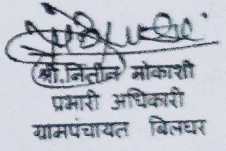 श्री. नितीन मोकाशी
प्रभारी अधिकारी
ग्रामपंचायत बिलघर